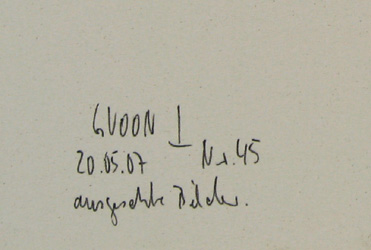 GVOON
20.05.07 Nr. 45
ausgesuchte Bilder.